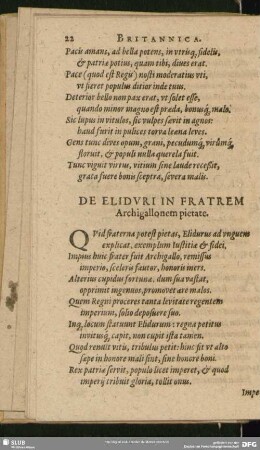 22 BRITANNICA.
Pacis amans, ad bella potens, in utrũq; fidelis,
& patriæ potius, quam tibi, dives erat.
Pace (quod est Regũ) nosti moderatius vti,
vt fieret populus ditior inde tuus.
Deterior bello non pax erat, vt solet esse,
quando minor magno est præda, bonusq; malo.
Sic lupus in vitulos, sic vulpes sævit in agnos:
haud furit in pulices torva leæna leves.
Gens tunc dives opum, grani, pecudumq;, virûmq;
floruit, & populi nulla querela fuit.
Tunc viguit virtus, vitium sine laude recessit,
grata fuere bonis sceptra, severa malis.
DE ELIDVRI IN FRATREM
Archigallonem pietate.
QVid fraterna potest pietas, Elidurus ad vnguem
explicat, exemplum Iustitiæ & fidei.
Impius huic frater fuit Archigallo, remissus
imperio, sceleris fautor, honoris iners.
Alterius cupidus fortunæ: dum sua vastat,
opprimit ingenuos, promovet are malos.
Quem Regni proceres tanta levitate regentem
imperium, solio deposuere suo.
Inq; locum statuunt Elidurum: regna petitus
invitusq; capit, non cupit ista tamen.
Quod renuit vitũ, tribulus petit: hinc fit vt alto
sæpe in honore mali sint, sine honore boni.
Rex patriæ servit, populo licet imperet, & quod
imperij tribuit gloria, tollit onus.
Impe
SLUB
DFG